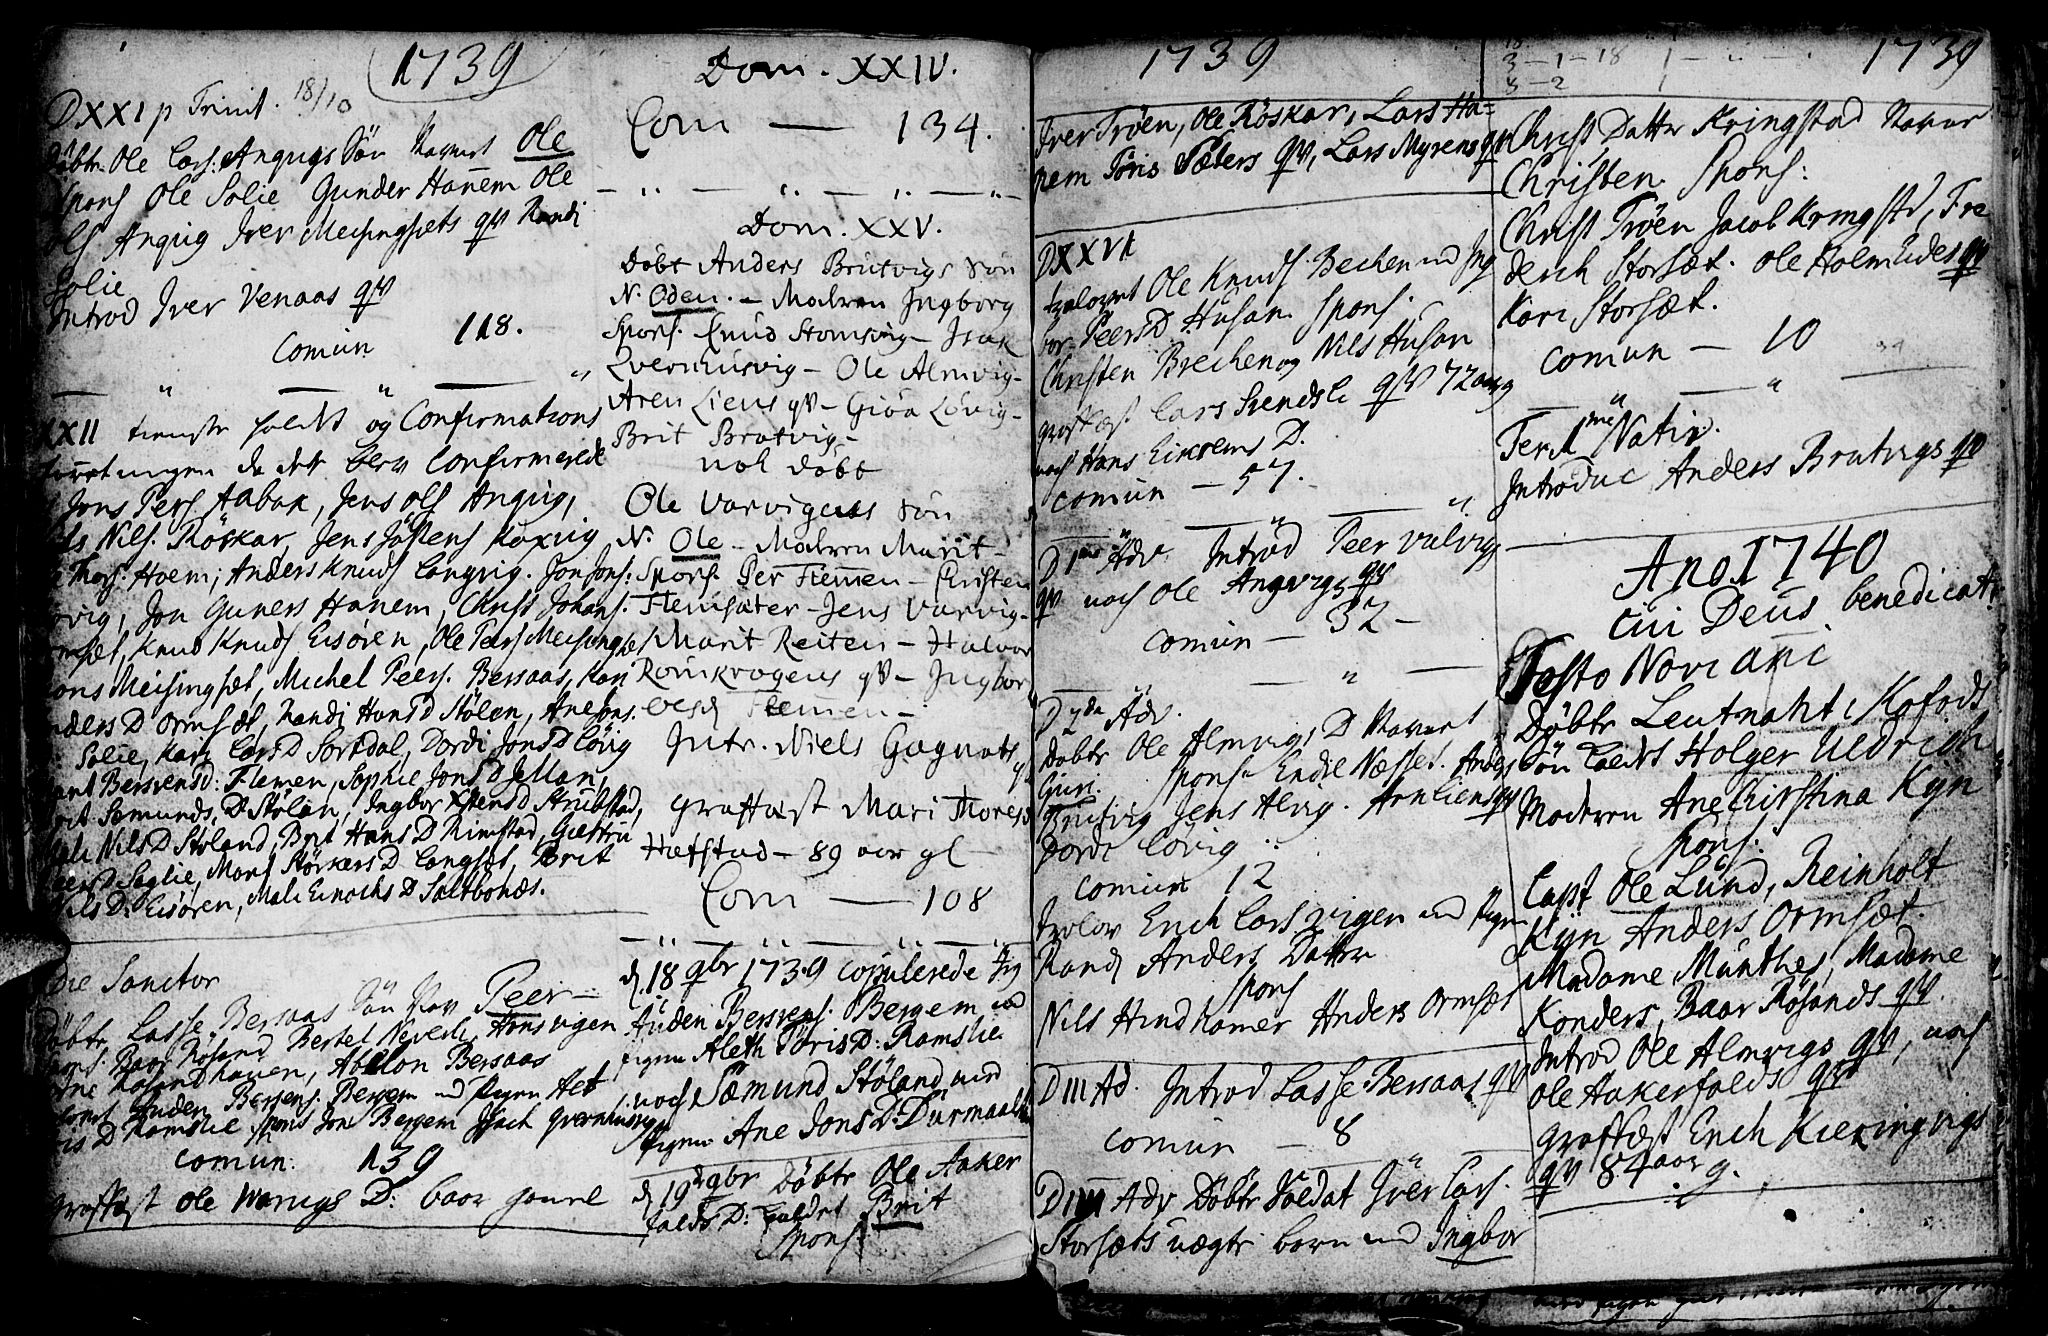 1739
DXXI p Trinit. 18/10
Döbte Ole Lars: Angvigs Sön Navnet Ole
Spons Ole Solie Gunder Hanem Ole
Ols Angvig Iver Meisingsets qv Randi
Solie
Introd Iver Venaas qv
Comun 118.
XXII tieneste holdt og Confirmations
forretningen da dette blev Confirmerede
Jons Pers Aabak, Jens Ols Angvig,
Nils Nils. Röskar, Jens Jöstens Koxvig
Thors: Hoem; Anders Knuds Langvig. Jon Jons:
Lövig, Jon Guners Hanem, Christ Johans.
Ormset, Knud Knuds Eisören, Ole Pers Meisingset
Jons Meisingset, Michel Peers. Bersaas, Kari
Anders D Ormset, Randi Hans D Stölen, Ane Jons.
Solie, Kari Lars D Sortdal, Dordi Jons D Lövig
Marit Bersvensd: Flemen, Sophie Jons D Jellan,
Brit Somunds. D Stölan, Ingbor Xstens D Strubstad,
Mali Nils D Stoland, Brit Hans D Rimstad, Giertru
Peers D Soglie, Marit Störkers D Langset, Brit
Nils D: Eisören, Mali Einochs D Saltbones.
Die Sanctor
Döbte Lasse Bersaas Sön Nav Peer
Spons Baar Rösand Bertel Neverli, Hans vigen
Ane Rosandhauen, Abelon Bersaas
Auden Bersens. Bergem ud Pigen Alet
Toris D Ramslie spons Jon Bergem Isach Qvernhusvig
Comun. 139
Graffæst Ole Warvigs D: baar gamel
Dom. XXIV.
Com — 134.
Dom. XXV.
Döbt Anders Brutvigs Sön
N. Oden. — Modren Ingborg
Spons. Knud Stomsvig — Isak
Qvernhusvig — Ole Almvig —
Aren Liens qv — Giöa Lövig —
Brit Brutvig —
nok döbt
Ole Varvigens Sön
N. Ole — Modren Marit —
Spons. Per Flemen — Christen
Flemsæter — Jens Varvig —
Marit Reiten — Halvor
Romkrogens qv — Ingbor
Olsd Flemen —
Intr. Niels Gagnats
qv
Graffæst Mari Thoresd
Hafstad — 89 aar gl —
Com — 108
d 18 9br 1739 Copulerede Ing
Auden Bersvens. Bergem ud
Pigen Aleth Toris D: Ramslie
noch Sæmund Stöland med
Pigen Ane Jons D: Durmaals
d 19 9br Döbte Ole Aaker
falds D: kaldet Brit
Spons.
1739
Iver Tröen, Ole Röskar, Lars Ha=
nem Toris Sæters qv, Lars Myrens qv
DXXVI
trolovet Ole Knuds. Bechen ud Ing
bor Peers D Husan. Spons.
Christen Brechen og Nils Husan
graffæst Lars Svendsli qv 72 aar g
noch Hans Eircsens D.
Comun — 57.
D 1ma Adv Introd Peer Valvigs
qv noch Ole Angvigs qv
Comun — 32 —
D 2da Adv.
Döbte Ole Almvigs D Navnet
Guri. Spons. Endre Næsset. Anders
Brutvig Jens Alvig. Arn Liens qv
Dorde Lövig.
Comun 12
Trolov Erich Lars vigen ud Pigen
Randi Anders Datter
Spons
Nils Hindhamer Anders Ormset
D III Ad. Introd Lasse Bersaas qv
Comun — 8
D IIII Adv Döbte Soldat Iver Lars.
Storsæts uægte barn ud Ingbor
3 — 1 — 18
4 — 2
1739
Christ Datter Kringstad Navnet
Christen. Spons:
Christ Tröen Jacob Kringstd, Fre
derich Storsæt. Ole Holm Eides qv
Kari Storsæt.
Comun — 10
Fer. 1me Nativ.
Introduc Anders Brutvigs qv
Ano 1740
Cui Deus benedicat.
Festo Novi ani
Döbte Leutnant Kofods
Sön kaldt Holger Uldrich
Moderen Ane Cirstina Kyn
Spons:
Capt Ole Lund, Reinholt
Kyn Anders Ormset.
Madame Munthes, Madame
Konders, Baar Rösands qv.
Introd Ole Almvigs qv, noch
Ole Aakerfalds qv
Graffæst Erich Kieringvigs
qv 84 aar g.